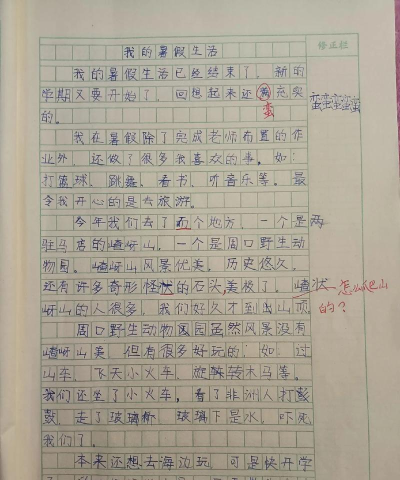 我的暑假生活
修正栏
我的暑假生活已经结束了，新的
学期又要开始了，回想起来还 充实
蛮
蛮蛮蛮蛮蛮
的。
我在暑假除了完成老师布置的作
业外，还做了很多我喜欢的事。如：
打篮球、跳舞、看书、听音乐等。最
令我开心的是去旅游。
今年我们去了 个地方，一个是
两
驻马店的嵖岈山，一个是周口野生动
物园。嵖岈山风景优美，历史悠久，
还有许多奇形怪状的石头，美极了。嵖
状
怎么爬山
的？
岈山的人很多，我们好久才到出山顶
周口野生动物园虽然风景没有
嵖岈山美，但有很多好玩的，如：过
山车、飞天小火车、旋转木马等。
我们还坐了小火车，看了非洲人打鼓
鼓，走了玻璃桥，玻璃下是水，吓死
我们了。
本来还想去海边玩，可是快开学